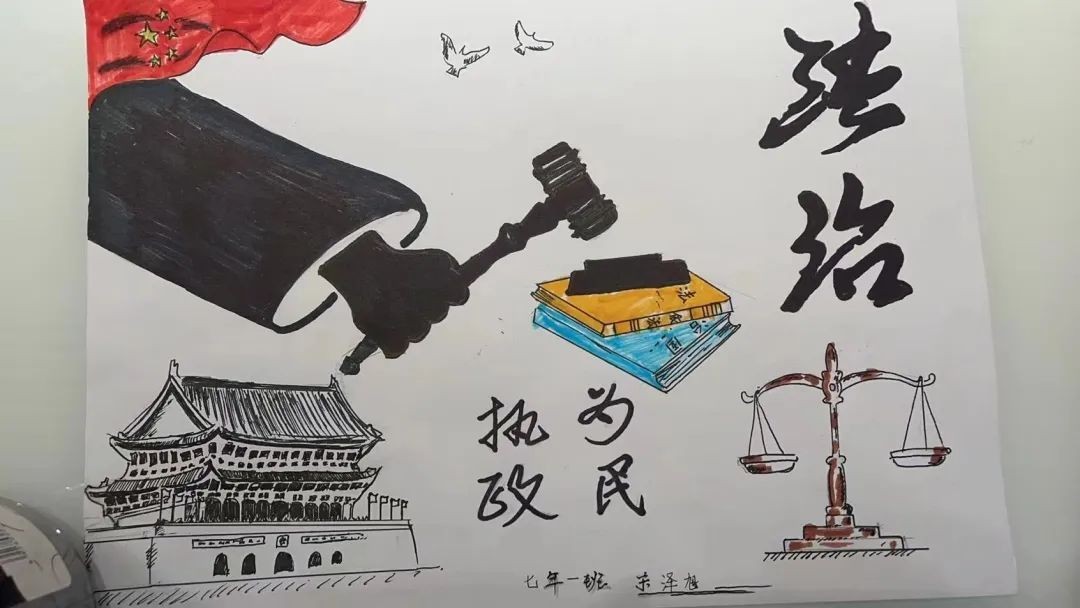 法治
执政
为民
七年一班 泽旭